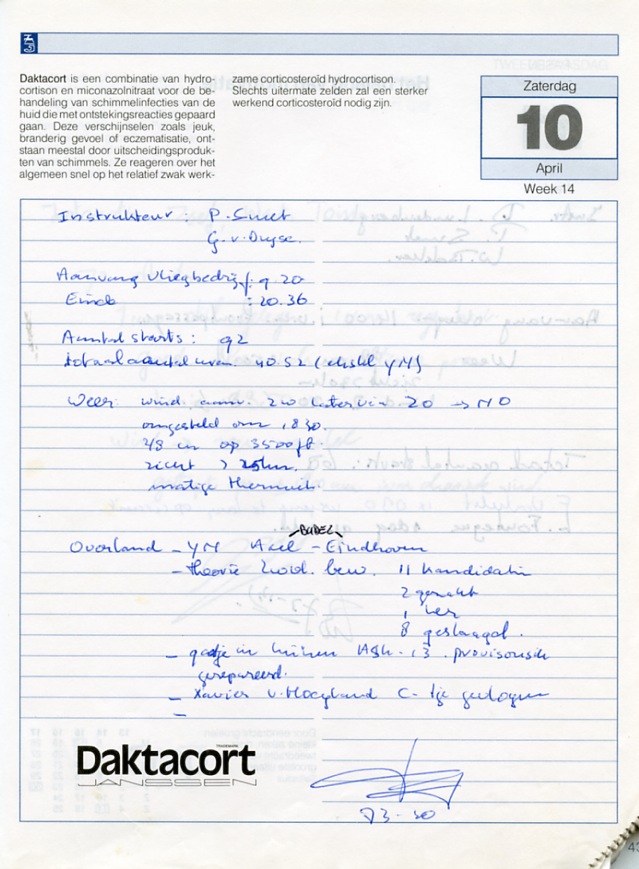 Daktacort is een combinatie van hydro-
cortison en miconazolnitraat voor de be-
handeling van schimmelinfecties van de
huid die met ontstekingsreacties gepaard
gaan. Deze verschijnselen zoals jeuk,
branderig gevoel of eczematisatie, ont-
staan meestal door uitscheidingsproduk-
ten van schimmels. Ze reageren over het
algemeen snel op het relatief zwak werk-
zame corticosteroïd hydrocortison.
Slechts uitermate zelden zal een sterker
werkend corticosteroïd nodig zijn.
Zaterdag
10
April
Week 14
Instrukteur : P. Smet
G. v. Duyse.
Aanvang vliegbedrijf : 9.20
Einde : 20.36
Aantal starts : 92
totaal aantal uren 40 52 (
YM)
Weer: wind. aanv. ZW later via ZO → NO
omgesteld om 1830.
4/8 cu op 3500 ft.
zicht > 25 km.
matige thermiek
BUDEL
Overland - YM Axel - Eindhoven
- theorie kand. bew. 11 kandidaten
2 gezakt
1 her
8 geslaagd.
- gaatje in kuisen ASK-13 provisorisch
gerepareerd.
- Xavier v. Hoeyland C-tje gevlogen
-
Daktacort
TRADEMARK
JANSSEN
43